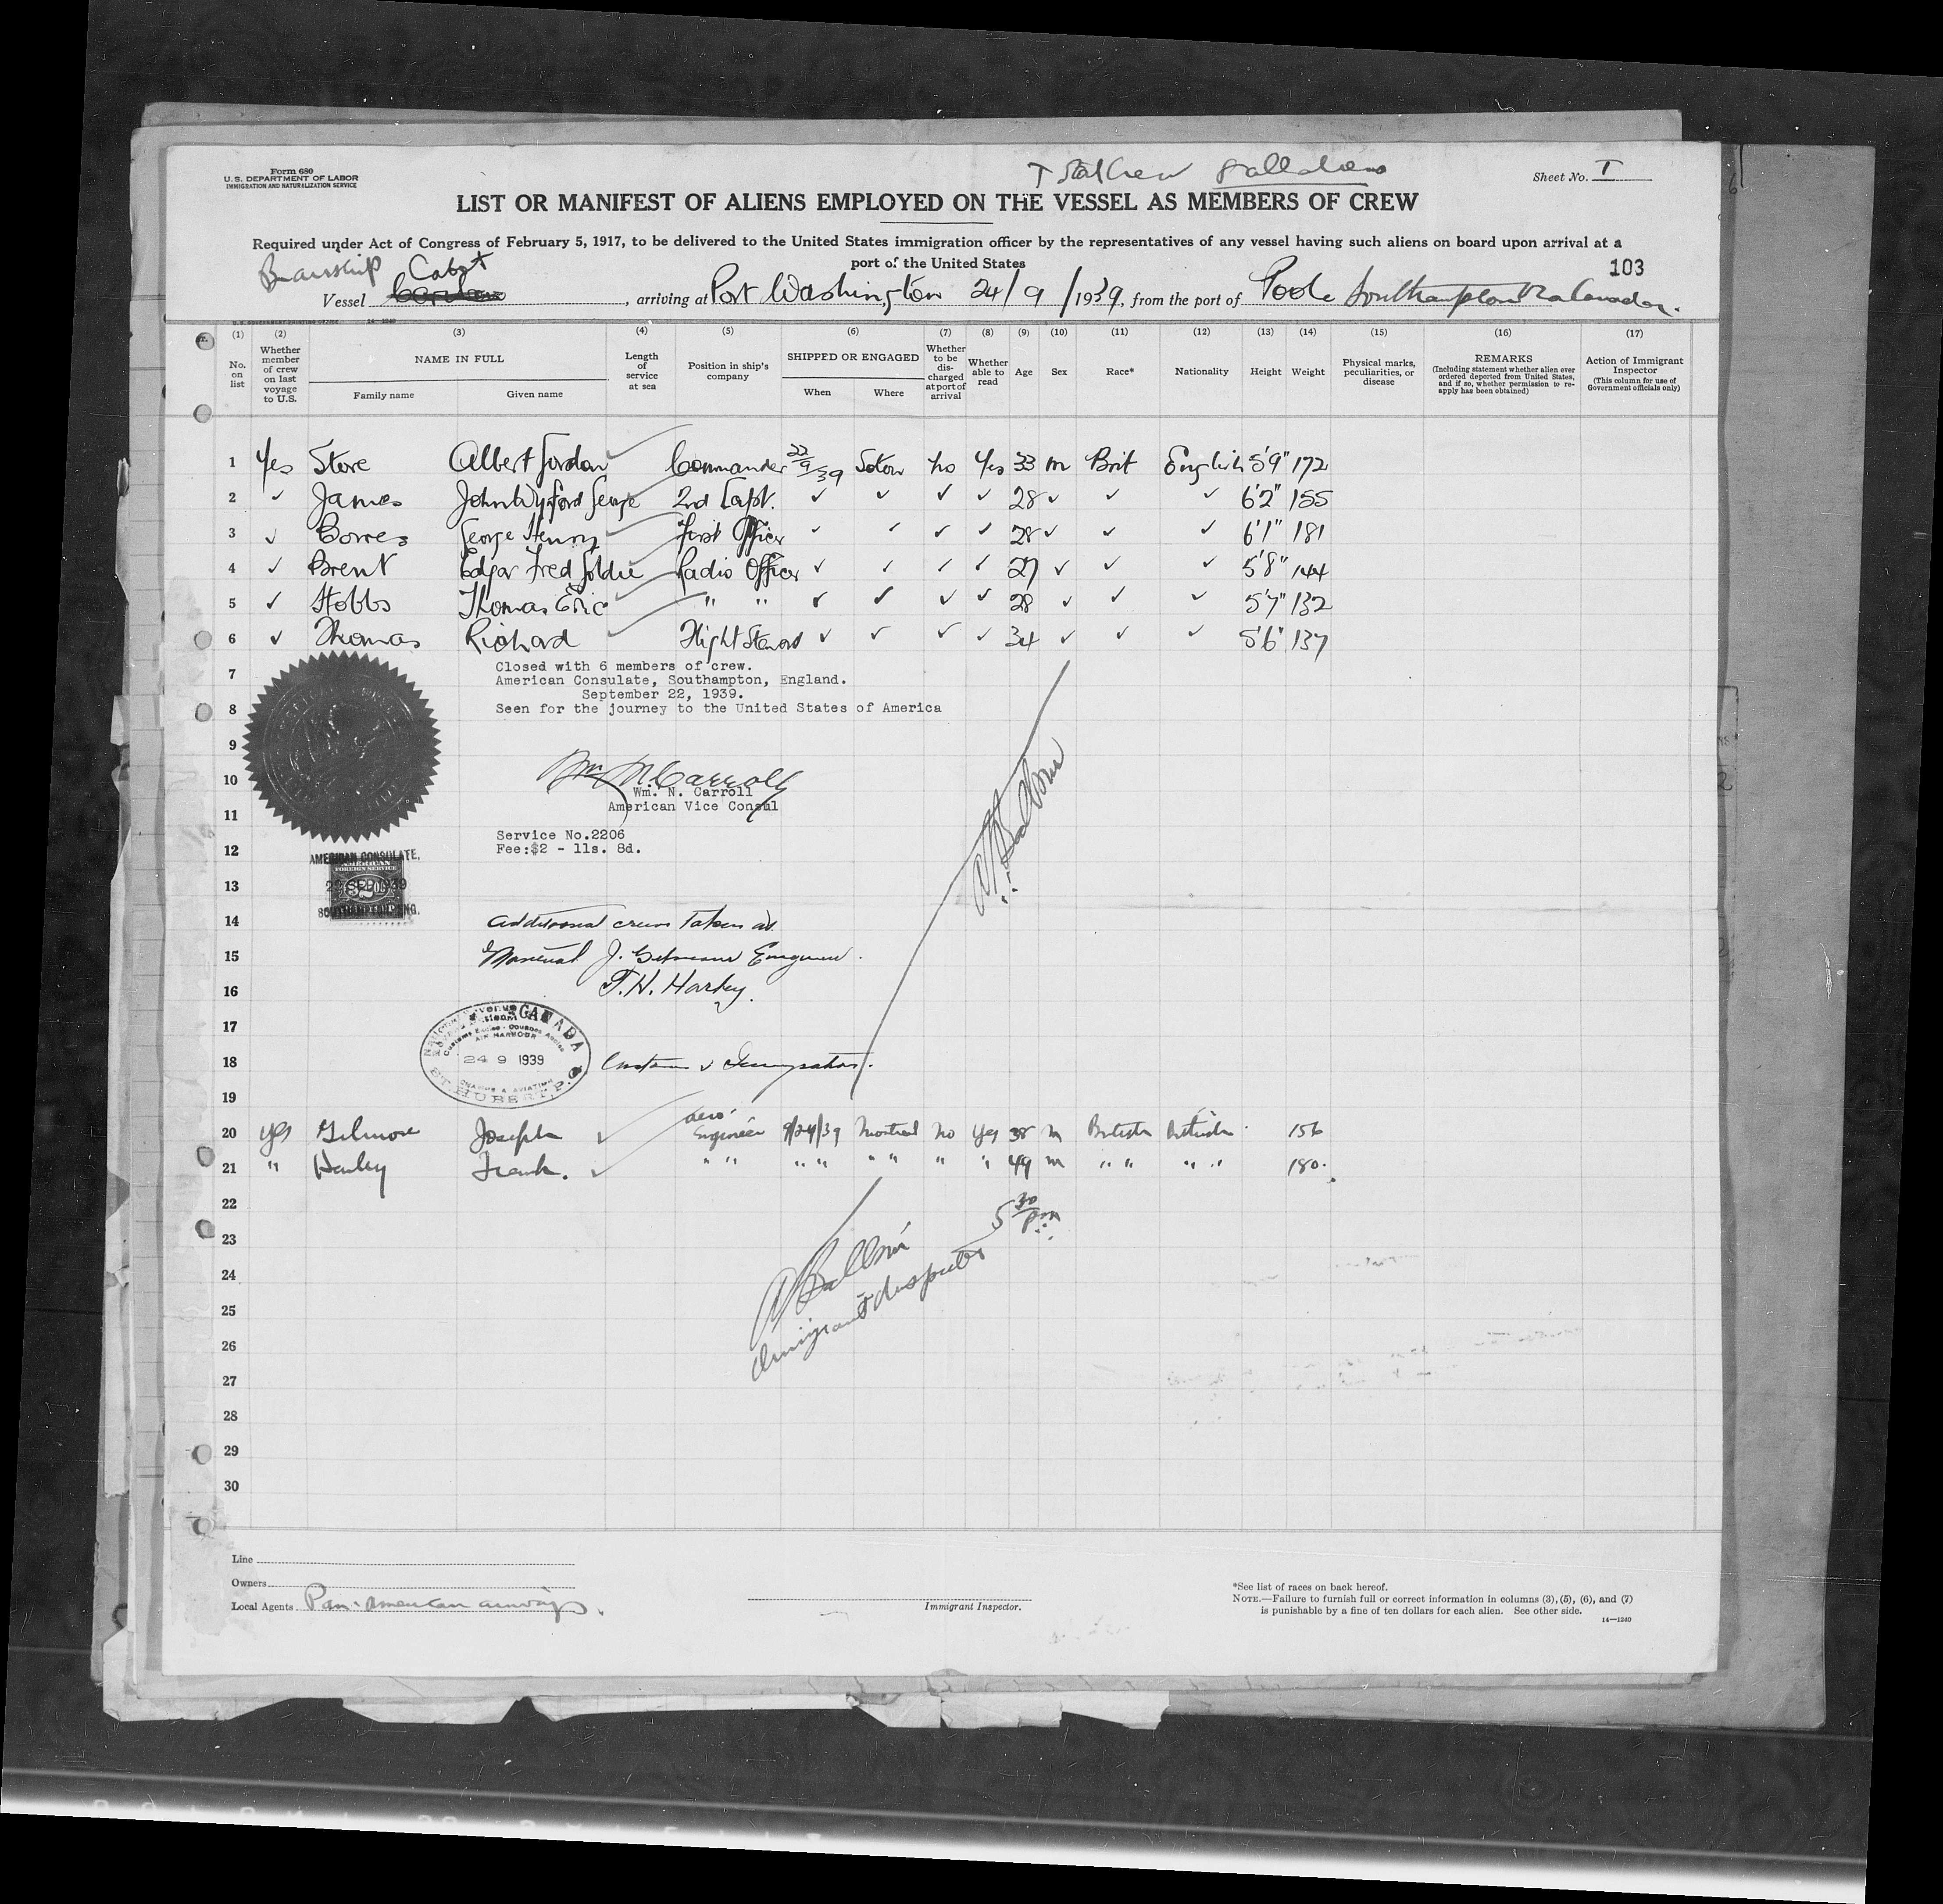 Form 680
U.S. DEPARTMENT OF LABOR
IMMIGRATION AND NATURALIZATION SERVICE
Sheet No. I
LIST OR MANIFEST OF ALIENS EMPLOYED ON THE VESSEL AS MEMBERS OF CREW
Required under Act of Congress of February 5, 1917, to be delivered to the United States immigration officer by the representatives of any vessel having such aliens on board upon arrival at a
port of the United States
103
Cabot
Vessel , arriving at Port Washington 24/9/1939, from the port of Poole Southampton Via Canada.
(1) (2) (3) (4) (5) (6) (7) (8) (9) (10) (11) (12) (13) (14) (15) (16) (17)
No. on list
Whether member of crew on last voyage to U.S.
NAME IN FULL
Family name Given name
Length of service at sea
Position in ship's company
SHIPPED OR ENGAGED
When Where
Whether to be discharged at port of arrival
Whether able to read
Age
Sex
Race*
Nationality
Height
Weight
Physical marks, peculiarities, or disease
REMARKS
(Including statement whether alien ever ordered deported from United States, and if so, whether permission to re-apply has been obtained)
Action of Immigrant Inspector
(This column for use of Government officials only)
1 Yes Store Albert Gordon Commander 22/9/39 Soton no Yes 33 m Brit English 5'9" 172
2 ✓ James John Wynford George 2nd Capt. ✓ ✓ ✓ ✓ 28 ✓ ✓ ✓ 6'2" 155
3 ✓ Bowes George Henry First Officer ✓ ✓ ✓ ✓ 28 ✓ ✓ ✓ 6'1" 181
4 ✓ Brent Edgar Fred Goldie Radio Officer ✓ ✓ ✓ ✓ 27 ✓ ✓ ✓ 5'8" 144
5 ✓ Hobbs Thomas Eric " " ✓ ✓ ✓ ✓ 28 ✓ ✓ ✓ 5'7" 132
6 ✓ Thomas Richard Flight Steward ✓ ✓ ✓ ✓ 34 ✓ ✓ ✓ 5'6" 137
7 Closed with 6 members of crew.
American Consulate, Southampton, England.
September 22, 1939.
8 Seen for the journey to the United States of America
9
10 Wm N. Carroll
Wm. N. Carroll
11 American Vice Consul
Service No.2206
12 Fee:$2 - 11s. 8d.
AMERICAN CONSULATE,
AMERICAN
FOREIGN SERVICE
13 22 SEP 1939
SOUTHAMPTON, ENG.
14 Additional crew taken at
15 Montreal J. Gilmore Engineer.
16 F.H. Harley.
17 CANADA
18 24 9 1939 Customs & Immigration.
ST. HUBERT, P.Q.
19
20 yes Gilmore Joseph Aero Engineer 9/24/39 Montreal No Yes 38 m British British 156
21 " Harley Frank. " " " " " " " " 49 m " " " " 180.
22 5 30 pm
23
24 Immigrant Inspector
25
26
27
28
29
30
Line
Owners
Local Agents Pan-American airways.
Immigrant Inspector.
*See list of races on back hereof.
NOTE.—Failure to furnish full or correct information in columns (3), (5), (6), and (7)
is punishable by a fine of ten dollars for each alien. See other side.
14—1240